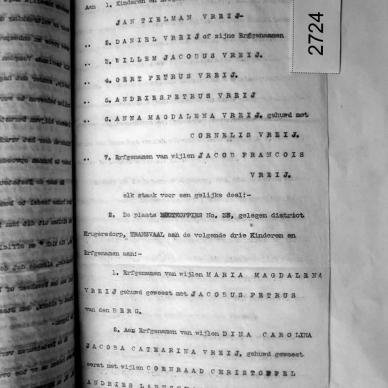 Aan 1. Kinderen en
JAN TIELMAN VREIJ-
2724
,, 2. DANIEL VREIJ of zijne Erfgenamen
,, 3. WILLEM JACOBUS VREIJ.
,, 4. GERT PETRUS VREIJ.
,, 5. ANDRIESPETRUS VREIJ
,, 6. ANNA MAGDALENA VREIJ. gehuwd met
CORNELIS VREIJ.
,, 7. Erfgenamen van wijlen JACOB FRANCOIS
VREIJ.
elk staak voor een gelijke deel:-
2. De plaats No. gelegen district
Krugersdorp, TRANSVAAL aan de volgende drie Kinderen en
Erfgenamen aan:-
1. Erfgenamen van wijlen MARIA MAGDALENA
VREIJ gehuwd geweest met JACOBUS PETRUS
van den BERG.
2. Aan Erfgenamen van wijlen DINA CAROLINA
JACOBA CATHARINA VREIJ, gehuwd geweest
eerst met wijlen COENRAAD CHRISTOFFEL
ANDRIES